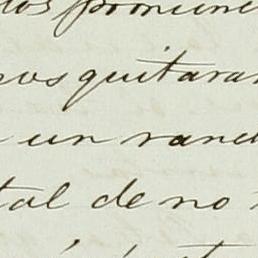 los pronunc
nos quitaran
un ranc
tal de no